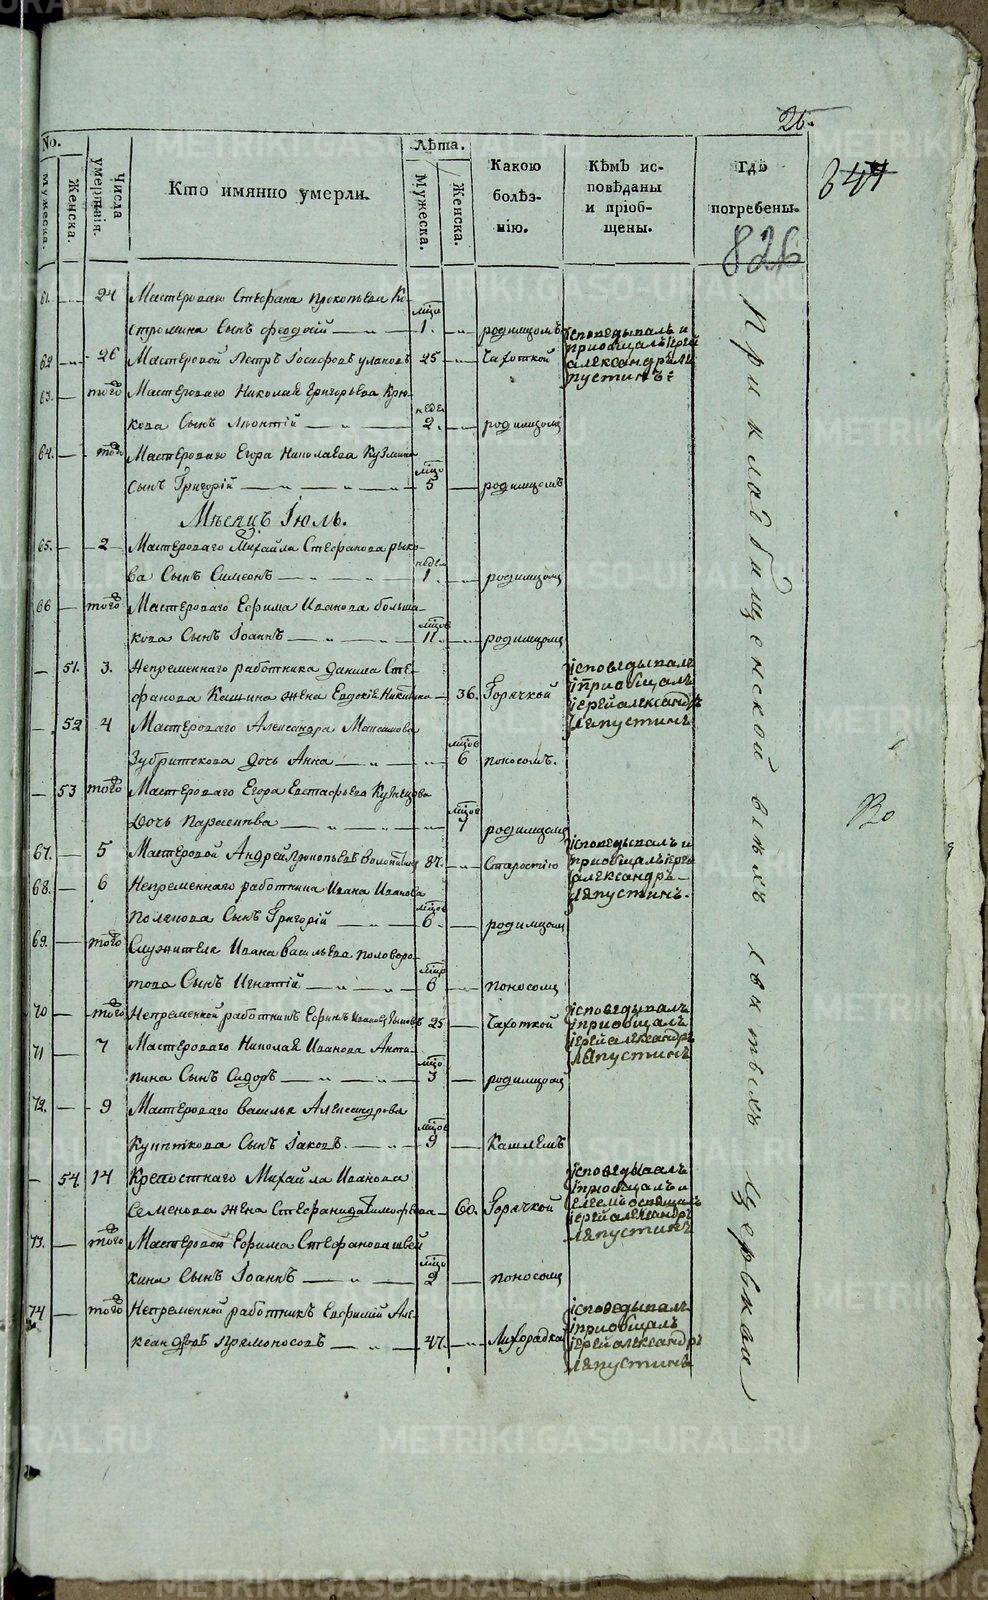 26.
344
No.
Мужеска.
Женска.
Числа умертвія.
Кто имянно умерли.
Лѣта.
Мужеска.
Женска.
Какою болѣз-нію.
Кѣмъ ис-повѣданы и пріоб-щены.
Гдѣ погребены.
826
61. 24 Мастероваго Стефана Прокопьева Ко-
стромина Сынъ Феодосій мцо 1. родимцомъ
62 26 Мастеровой Петръ Іосифовъ улановъ 25 Чахоткой
исповѣдывалъ и
пріобщалъ Іерей
александръ ля
пустинъ:
63. того Мастероваго Николая Григорьева Крю-
кова Сынъ Леонтій недел 2. родимцомъ
64. того Мастероваго Егора Николаева Кузмина
сынъ Григорій мцо 5 родимцомъ
Мѣсяцъ Іюль.
65. 2 Мастероваго Михайла Стефанова рыко-
ва Сынъ Симеонъ недел 1. родимцомъ
66 того Мастероваго Ефима Иванова больша-
кова Сынъ Іоаннъ мцов 11. родимцомъ
51. 3. Непременнаго работника данила Сте-
фанова Кашина жена Евдокія 36. Горячкой
исповѣдывалъ
и пріобщалъ
іерей александръ
ляпустинъ
52 4 Мастероваго Александра Максимова
Зубрицкова дочь Анна мцов 6 поносомъ.
53 того Мастероваго Егора Евстафьева Кузнецова
дочь Параскева мцов 7 родимцомъ
67. 5 Мастеровой Андрей Прокопьевъ 87. Старостію
исповѣдывалъ и
пріобщалъ іерей
александръ
ляпустинъ.
68. 6 Непременнаго работника Ивана Иванова
поленова Сынъ Григорій мцов 6. родимцомъ
69. того Служителя Ивана Васильева половоро-
това Сынъ Игнатій мцов 6 поносомъ
70 того Непременной работникъ Ефимъ 25 Чахоткой
исповѣдывалъ
и пріобщалъ
іерей александръ
ляпустинъ
71 7 Мастероваго Николая Иванова Анти-
пина Сынъ Сидоръ мцо 3 родимцомъ
72. 9 Мастероваго Василья Александрова
Сынъ Іаковъ. мцов 9 Кашлемъ
54. 14 Крепостнаго Михайла Иванова
Семенова жена Стефанида Тимофеева 60. Горячкой
исповѣдывалъ
пріобщалъ и
елеемъ освящалъ
іерей александръ
ляпустинъ
73. того Мастероваго Ефима Стефанова швей
кина Сынъ Іоаннъ мцо 2 поносомъ
74 того Непременной работникъ Евфимій Але-
ксандровъ Прямоносовъ 47. Лихорадкою
исповѣдывалъ
и пріобщалъ
іерей александръ
ляпустинъ
При кладбищенской всѣхъ святыхъ церкви
METRIKI.GASO-URAL.RU